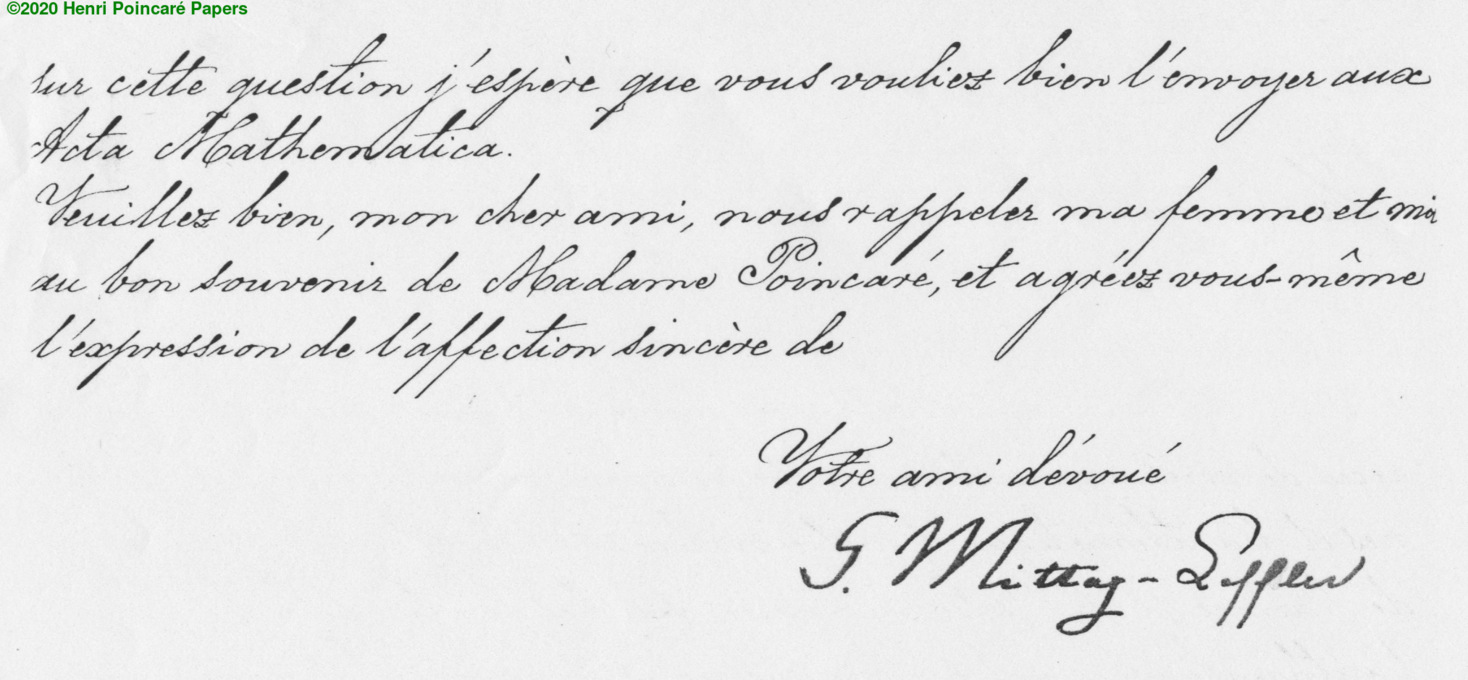 ©2020 Henri Poincaré Papers
sur cette question j'espère que vous vouliez bien l'envoyer aux
Acta Mathematica.
Veuillez bien, mon cher ami, nous rappeler ma femme et moi
au bon souvenir de Madame Poincaré, et agréez vous-même
l'expression de l'affection sincère de
Votre ami dévoué
G. Mittag-Leffler